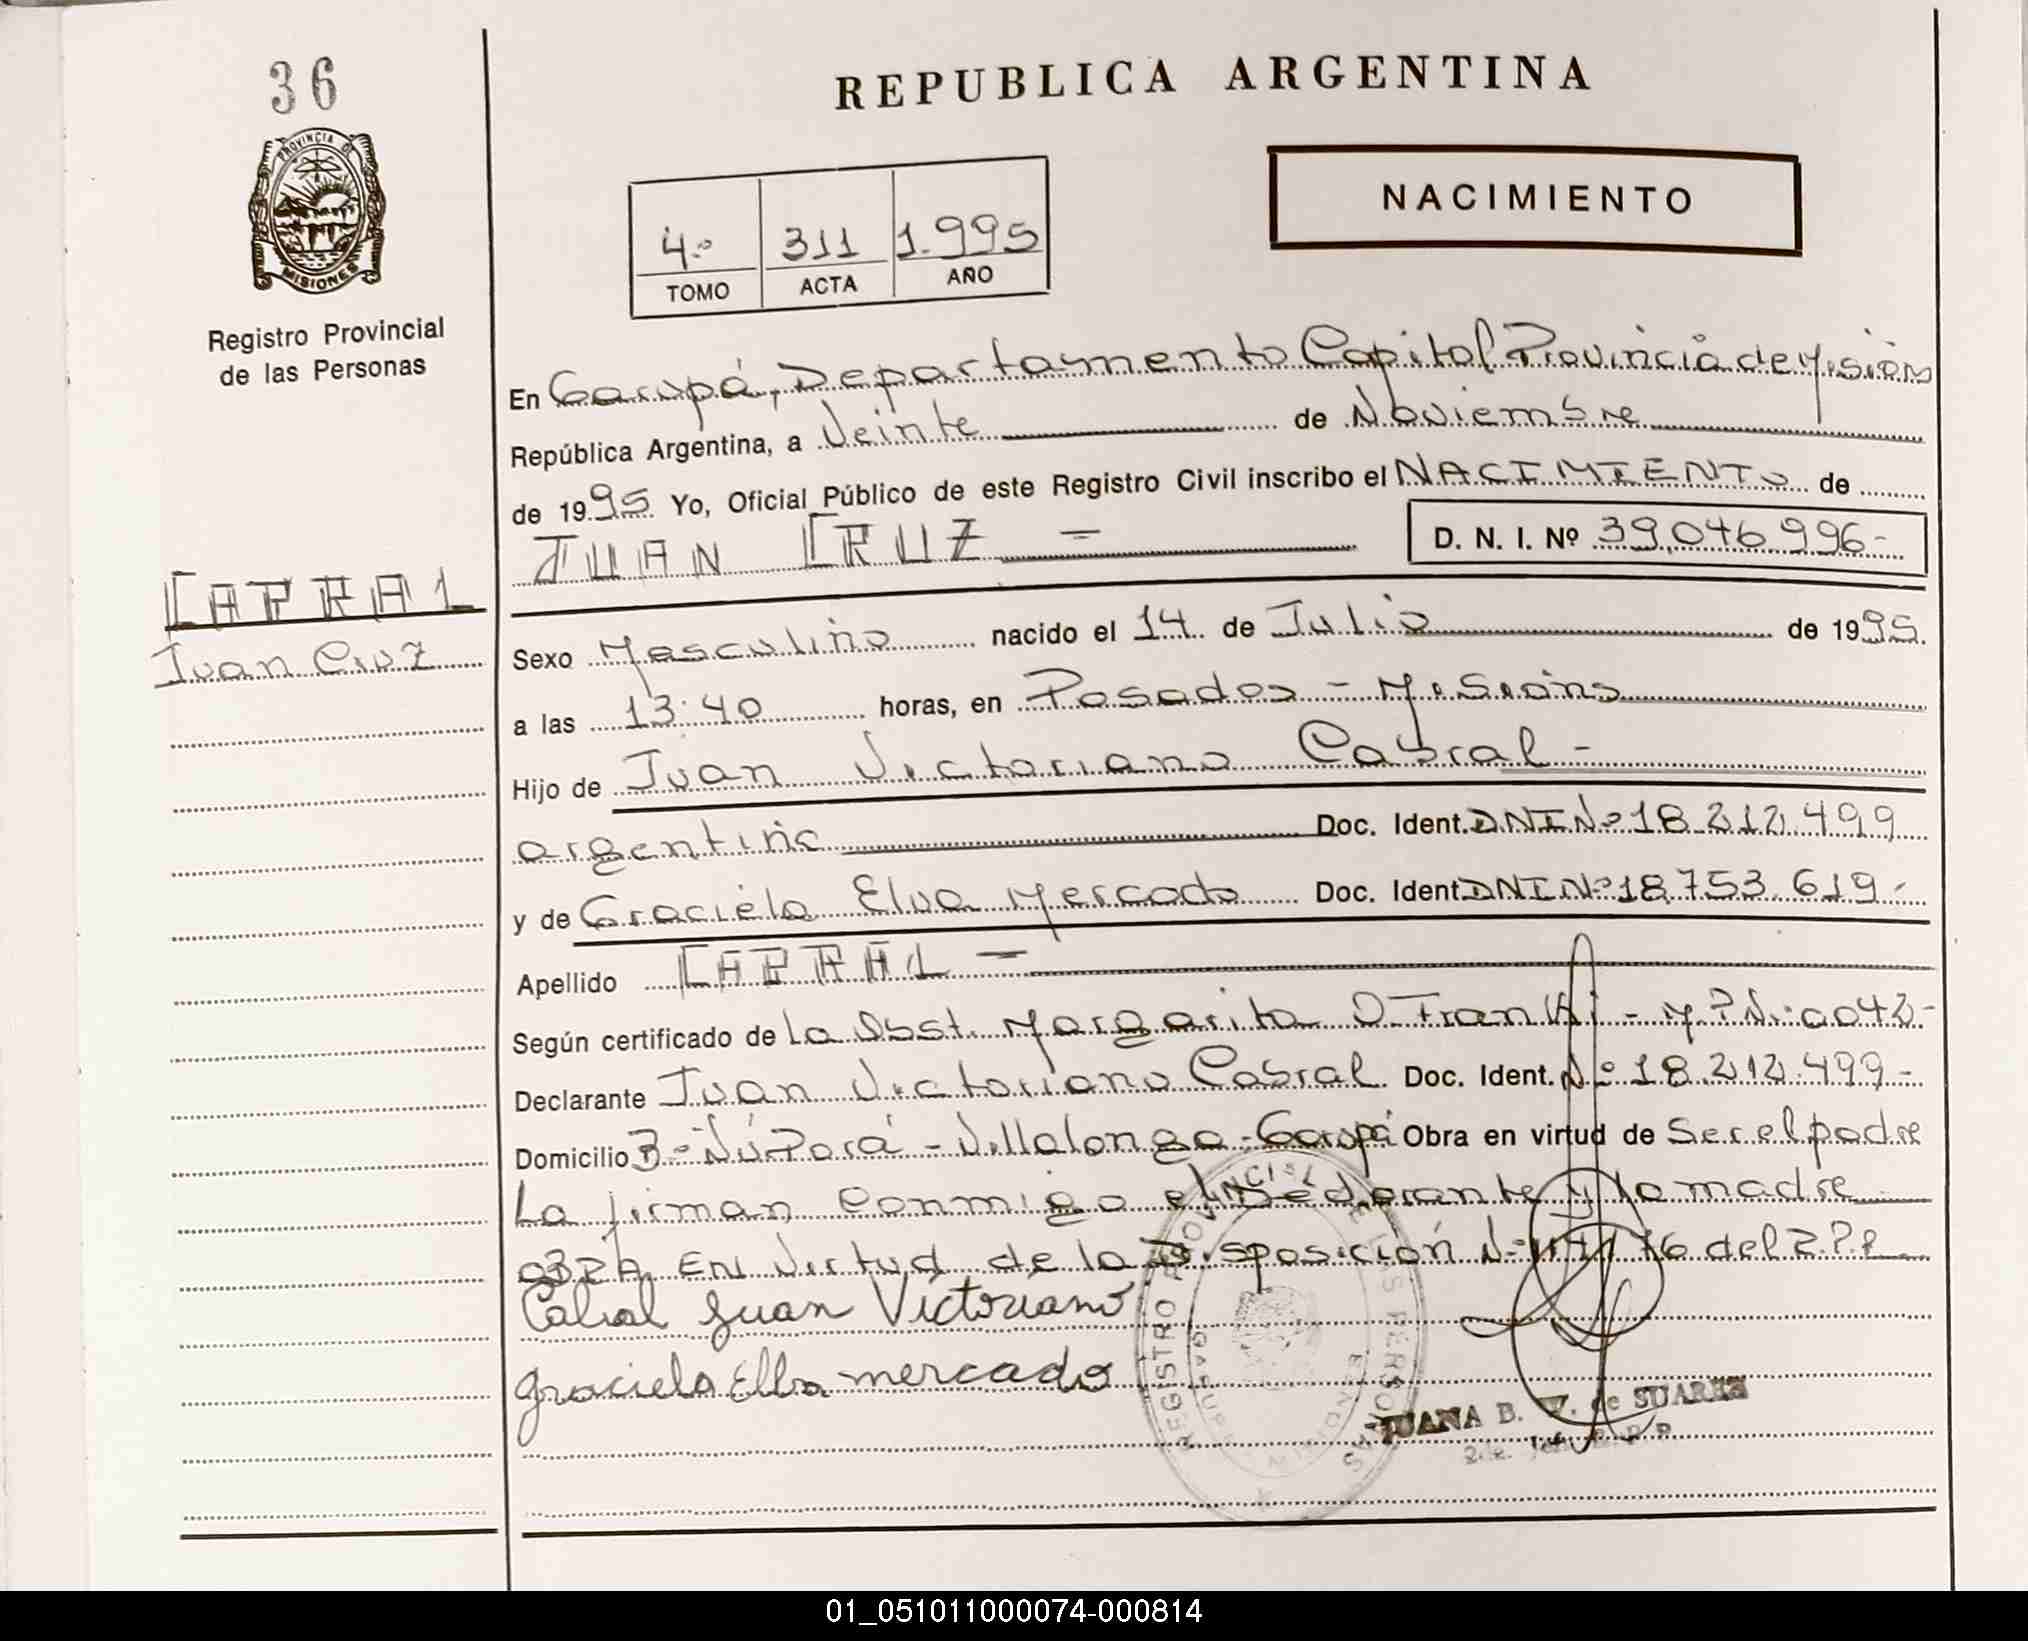 36
REPUBLICA ARGENTINA
PROVINCIA DE MISIONES
NACIMIENTO
4º 311 1.995
TOMO ACTA AÑO
Registro Provincial
de las Personas
En Garupá, Departamento Capital Provincia de Misiones
República Argentina, a Veinte de Noviembre
de 1995 Yo, Oficial Público de este Registro Civil inscribo el NACIMIENTO de
JUAN CRUZ - D. N. I. Nº 39.046.996-
CABRAL
Juan Cruz
Sexo Masculino nacido el 14 de Julio de 1995.
a las 13:40 horas, en Posadas - Misiones
Hijo de Juan Victoriano Cabral -
argentina Doc. Ident. DNI Nº 18.212.499
y de Graciela Elva Mercado Doc. Ident DNI Nº 18.753.619-
Apellido CABRAL -
Según certificado de La Obst. Margarita O Franki - M.P.N.: 0042-
Declarante Juan Victoriano Cabral Doc. Ident. Nº 18.212.499-
Domicilio Bº Ñú Porá - Villalonga - Garupá Obra en virtud de Ser el padre
La firman conmigo el declarante y la madre
obra En Virtud de la Disposición Nº 76 del R.P.P.
Cabral Juan Victoriano
Graciela Elba mercado
REGISTRO PROVINCIAL DE LAS PERSONAS
JUANA B. V. de SUAREZ
01_051011000074-000814